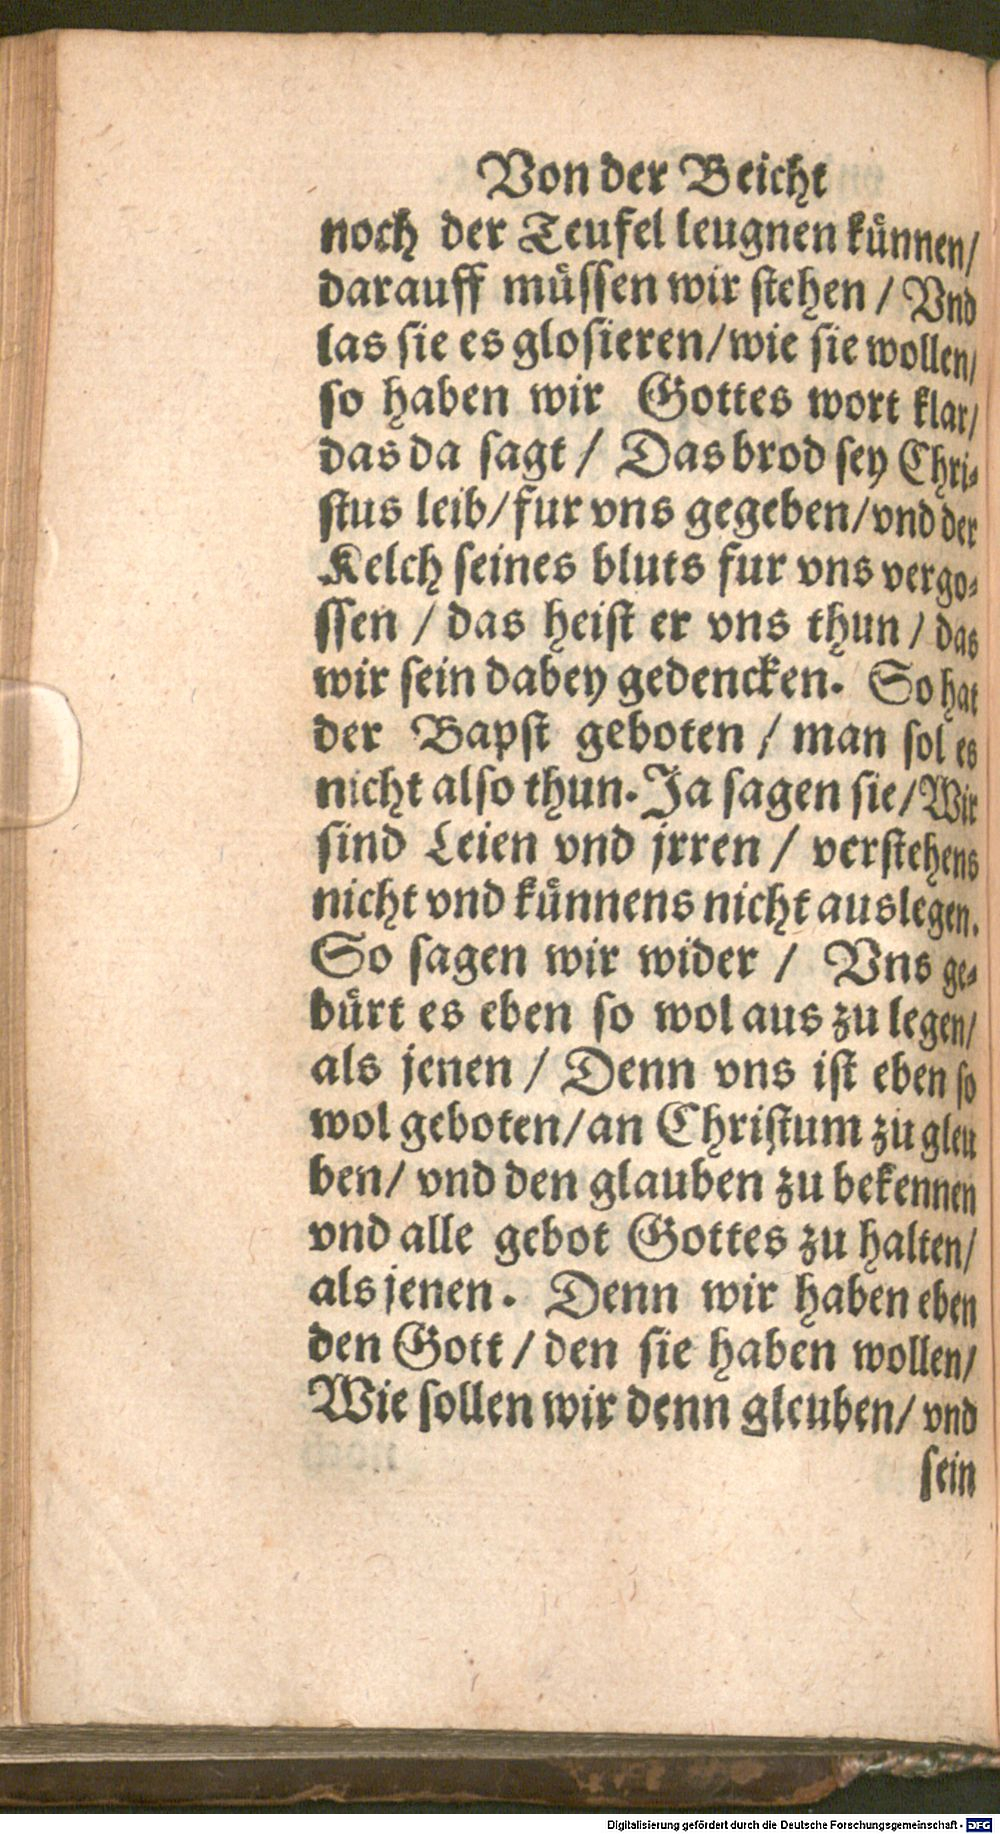 Von der Beicht
noch der Teufel leugnen künnen/
darauff müssen wir stehen / Vnd
las sie es glosieren/wie sie wollen/
so haben wir Gottes wort klar/
das da sagt / Das brod sey Chri-
stus leib/fur vns gegeben/vnd der
Kelch seines bluts fur vns vergo-
ssen / das heist er vns thun / das
wir sein dabey gedencken. So hat
der Bapst geboten / man sol es
nicht also thun. Ja sagen sie/Wir
sind Leien vnd jrren / verstehens
nicht vnd künnens nicht auslegen.
So sagen wir wider / Vns ge-
bürt es eben so wol aus zu legen/
als jenen / Denn vns ist eben so
wol geboten/an Christum zu gleu
ben/ vnd den glauben zu bekennen
vnd alle gebot Gottes zu halten/
als jenen. Denn wir haben eben
den Gott / den sie haben wollen/
Wie sollen wir denn gleuben/ vnd
sein
Digitalisierung gefördert durch die Deutsche Forschungsgemeinschaft - DFG